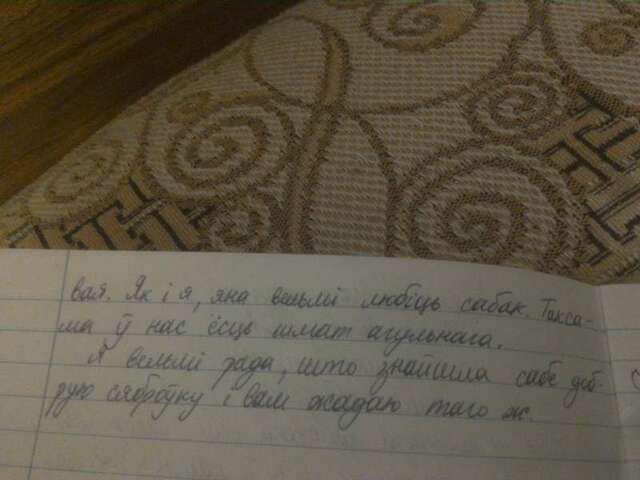 вая. Як і я, яна вельмі любіць сабак. Такса-
ма ў нас ёсць шмат агульнага.
Я вельмі рада, што знайшла сабе доб-
рую сяброўку і вам жадаю таго ж.